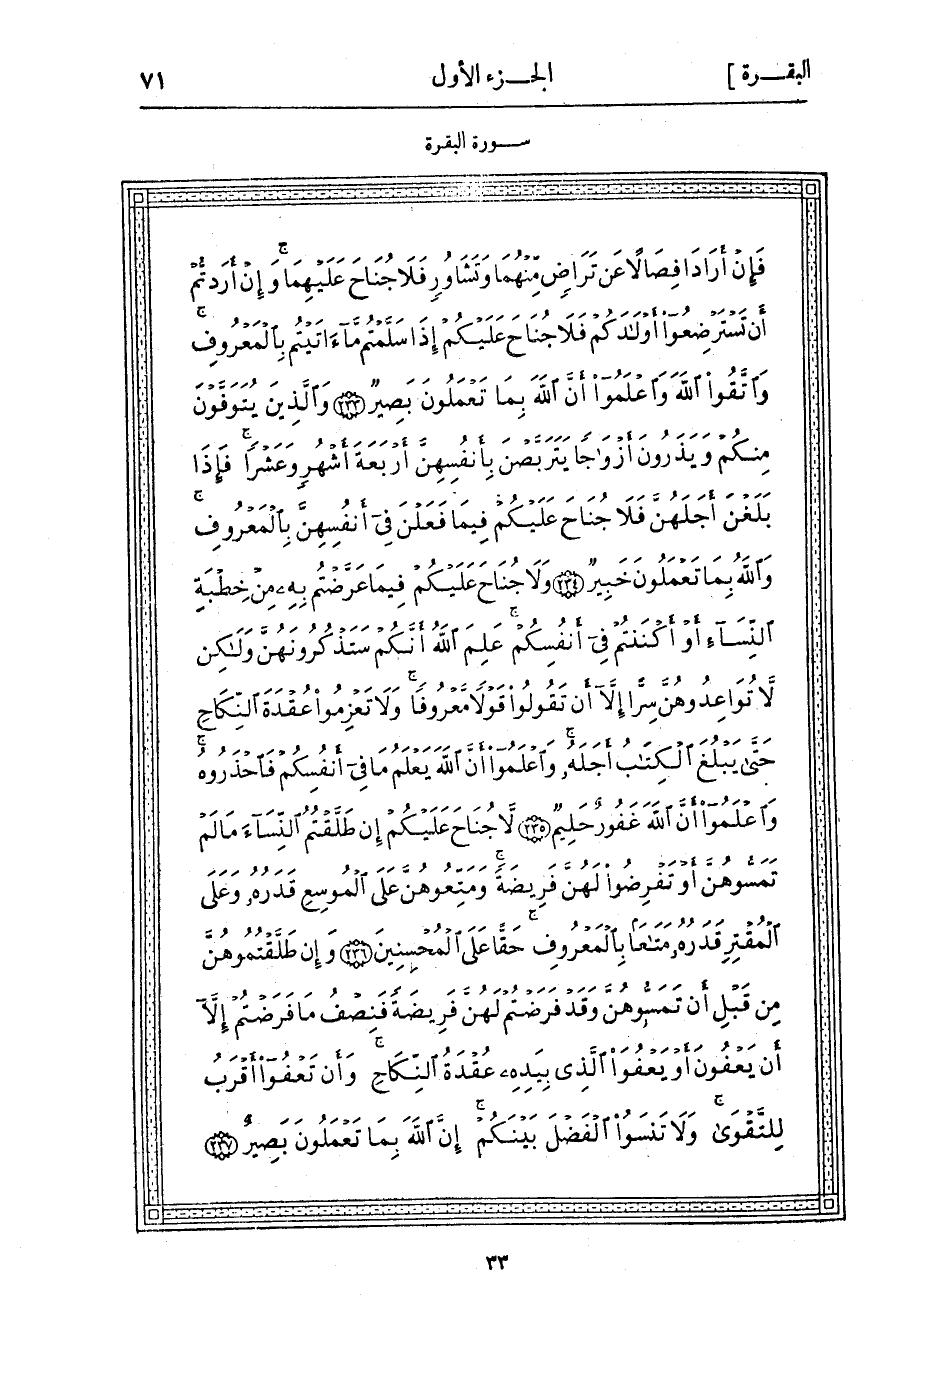 البقـــرة ] الجـــزء الأول ٧١
ســـورة البقرة
فَإِنْ أَرَادَا فِصَالًا عَن تَرَاضٍ مِّنْهُمَا وَتَشَاوُرٍ فَلَا جُنَاحَ عَلَيْهِمَا ۚ وَإِنْ أَرَدتُّمْ
أَن تَسْتَرْضِعُوٓا۟ أَوْلَٰدَكُمْ فَلَا جُنَاحَ عَلَيْكُمْ إِذَا سَلَّمْتُم مَّآ ءَاتَيْتُم بِٱلْمَعْرُوفِ ۚ
وَٱتَّقُوا۟ ٱللَّهَ وَٱعْلَمُوٓا۟ أَنَّ ٱللَّهَ بِمَا تَعْمَلُونَ بَصِيرٌ ﴿٢٣٣﴾ وَٱلَّذِينَ يُتَوَفَّوْنَ
مِنكُمْ وَيَذَرُونَ أَزْوَٰجًا يَتَرَبَّصْنَ بِأَنفُسِهِنَّ أَرْبَعَةَ أَشْهُرٍ وَعَشْرًا ۖ فَإِذَا
بَلَغْنَ أَجَلَهُنَّ فَلَا جُنَاحَ عَلَيْكُمْ فِيمَا فَعَلْنَ فِىٓ أَنفُسِهِنَّ بِٱلْمَعْرُوفِ ۗ
وَٱللَّهُ بِمَا تَعْمَلُونَ خَبِيرٌ ﴿٢٣٤﴾ وَلَا جُنَاحَ عَلَيْكُمْ فِيمَا عَرَّضْتُم بِهِۦ مِنْ خِطْبَةِ
ٱلنِّسَآءِ أَوْ أَكْنَنتُمْ فِىٓ أَنفُسِكُمْ ۚ عَلِمَ ٱللَّهُ أَنَّكُمْ سَتَذْكُرُونَهُنَّ وَلَٰكِن
لَّا تُوَاعِدُوهُنَّ سِرًّا إِلَّآ أَن تَقُولُوا۟ قَوْلًا مَّعْرُوفًا ۚ وَلَا تَعْزِمُوا۟ عُقْدَةَ ٱلنِّكَاحِ
حَتَّىٰ يَبْلُغَ ٱلْكِتَٰبُ أَجَلَهُۥ ۚ وَٱعْلَمُوٓا۟ أَنَّ ٱللَّهَ يَعْلَمُ مَا فِىٓ أَنفُسِكُمْ فَٱحْذَرُوهُ ۚ
وَٱعْلَمُوٓا۟ أَنَّ ٱللَّهَ غَفُورٌ حَلِيمٌ ﴿٢٣٥﴾ لَّا جُنَاحَ عَلَيْكُمْ إِن طَلَّقْتُمُ ٱلنِّسَآءَ مَا لَمْ
تَمَسُّوهُنَّ أَوْ تَفْرِضُوا۟ لَهُنَّ فَرِيضَةً ۚ وَمَتِّعُوهُنَّ عَلَى ٱلْمُوسِعِ قَدَرُهُۥ وَعَلَى
ٱلْمُقْتِرِ قَدَرُهُۥ مَتَٰعًا بِٱلْمَعْرُوفِ ۖ حَقًّا عَلَى ٱلْمُحْسِنِينَ ﴿٢٣٦﴾ وَإِن طَلَّقْتُمُوهُنَّ
مِن قَبْلِ أَن تَمَسُّوهُنَّ وَقَدْ فَرَضْتُمْ لَهُنَّ فَرِيضَةً فَنِصْفُ مَا فَرَضْتُمْ إِلَّآ
أَن يَعْفُونَ أَوْ يَعْفُوَا۟ ٱلَّذِى بِيَدِهِۦ عُقْدَةُ ٱلنِّكَاحِ ۚ وَأَن تَعْفُوٓا۟ أَقْرَبُ
لِلتَّقْوَىٰ ۚ وَلَا تَنسَوُا۟ ٱلْفَضْلَ بَيْنَكُمْ ۚ إِنَّ ٱللَّهَ بِمَا تَعْمَلُونَ بَصِيرٌ ﴿٢٣٧﴾
٣٣